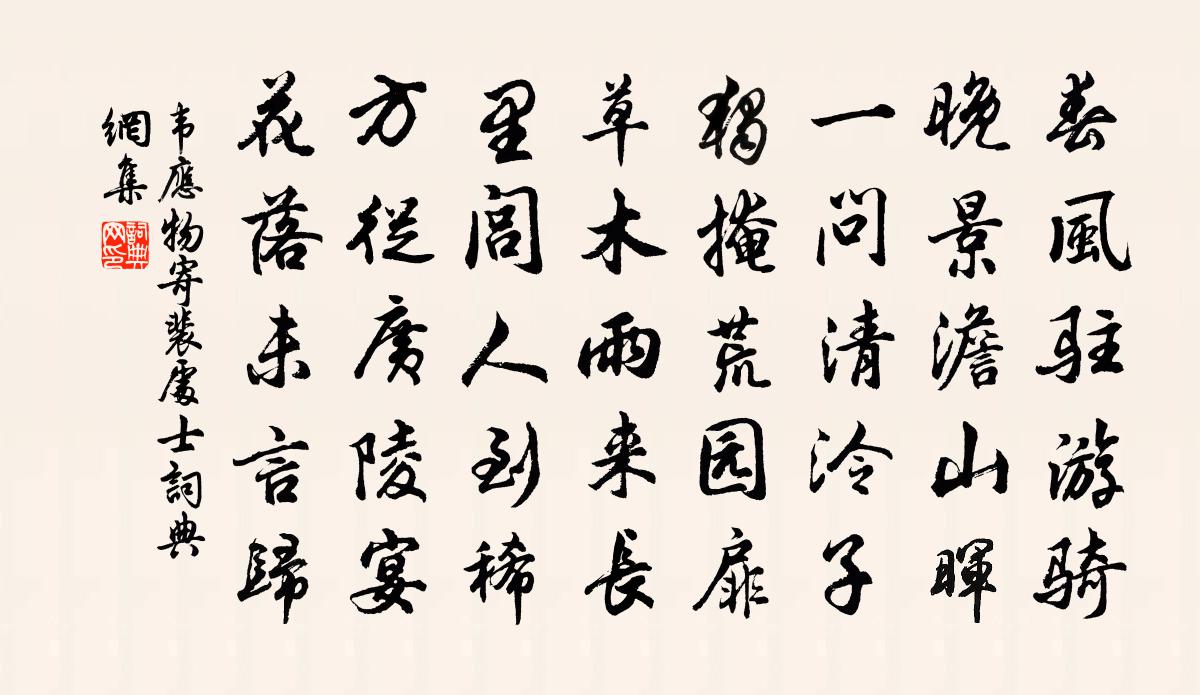 春風駐游骑
晚景澹山暉
一问清泠子
獨掩荒园扉
草木雨来長
里閭人到稀
方從廣陵宴
花落未言歸
韦應物寄裴處士詞典
網集
詞典
网印